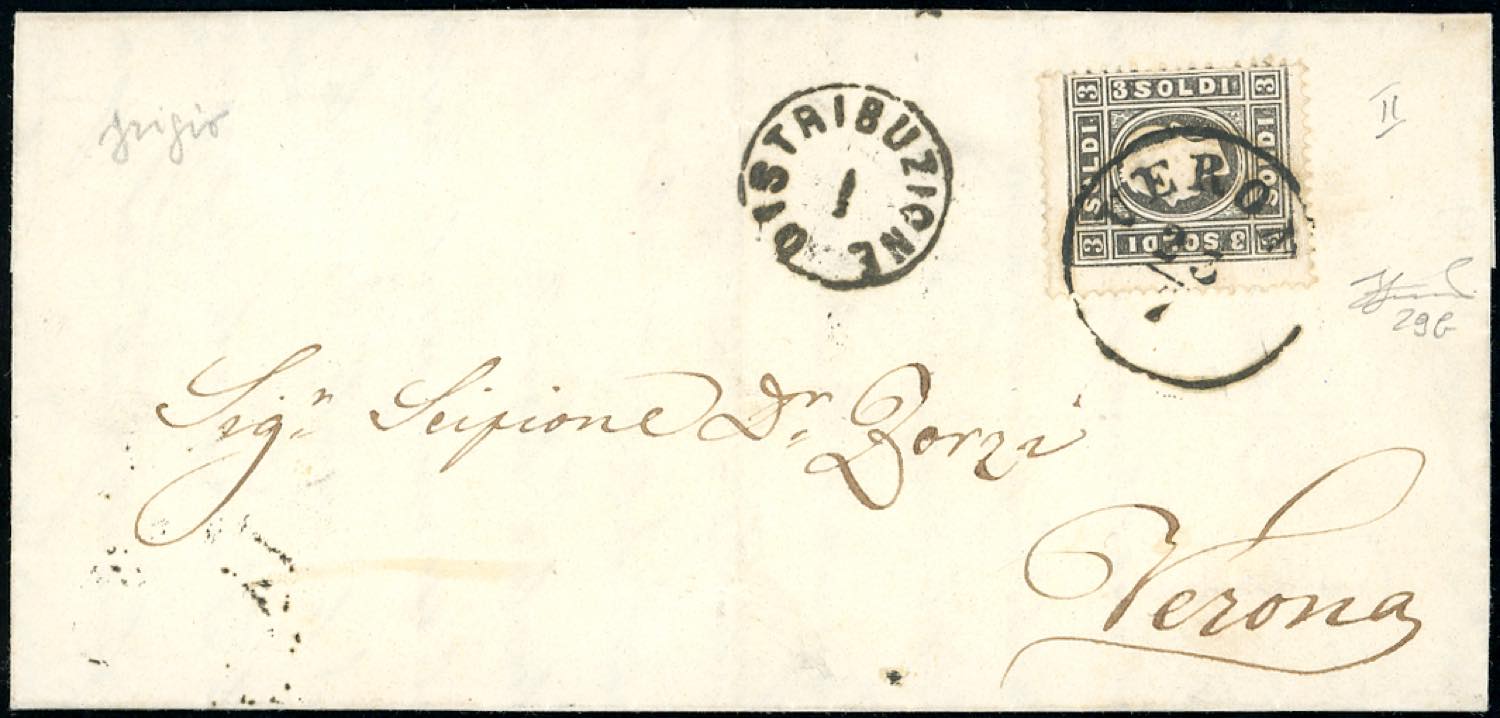 grigio
DISTRIBUZIONE
1
3 3 SOLDI 3
SOLDI
SOLDI
3 3 SOLDI
VERONA
II
29b
Sign Scipione Dr. Zorzi
Verona